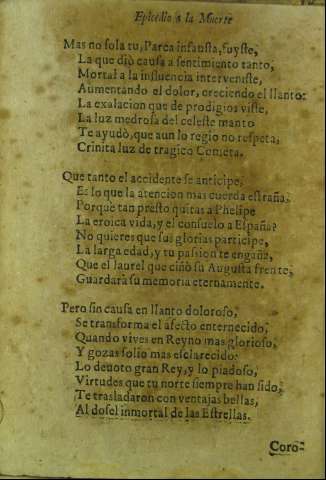 Epicedio a la Muerte
Mas no sola tu, Parca infausta, fuyste,
La que diò causa a sentimiento tanto,
Mortal a la influencia interveniste,
Aumentando el dolor, creciendo el llanto:
La exalacion que de prodigios viste,
La luz medrosa del celeste manto
Te ayudò, que aun lo regio no respeta,
Crinita luz de tragico Cometa.
Que tanto el accidente se anticipe,
Es lo que la atencion mas cuerda estraña,
Porque tan presto quitas a Phelipe
La eroica vida, y el consuelo a España?
No quieres que sus glorias participe,
La larga edad, y tu passion te engaña,
Que el laurel que ciñò su Augusta frente,
Guardarà su memoria eternamente.
Pero sin causa en llanto doloroso,
Se transforma el afecto enternecido,
Quando vives en Reyno mas glorioso,
Y gozas solio mas esclarecido:
Lo deuoto gran Rey, y lo piadoso,
Virtudes que tu norte siempre han sido,
Te trasladaron con ventajas bellas,
Al dosel inmortal de las Estrellas.
Coro-